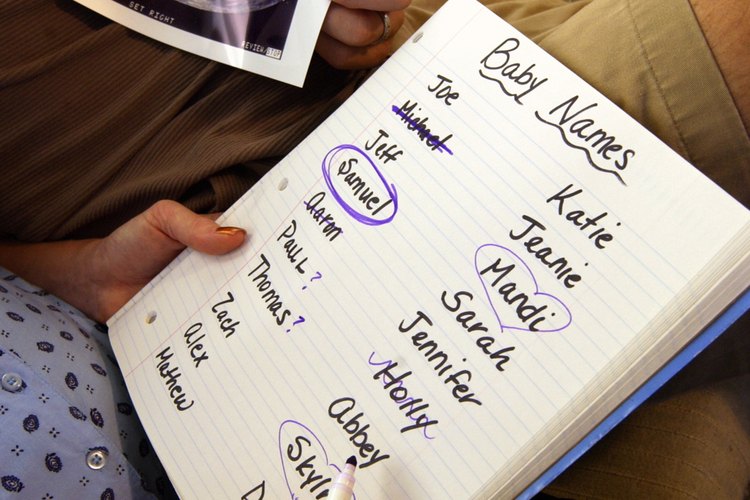 SET RIGHT
REVIEW/STOP
Baby Names
Joe
Michael
Jeff
Samuel
Aaron
Paul?
Thomas?
Zach
Alex
Mathew
Katie
Jeanie
Mandi
Sarah
Jennifer
Holly
Abbey